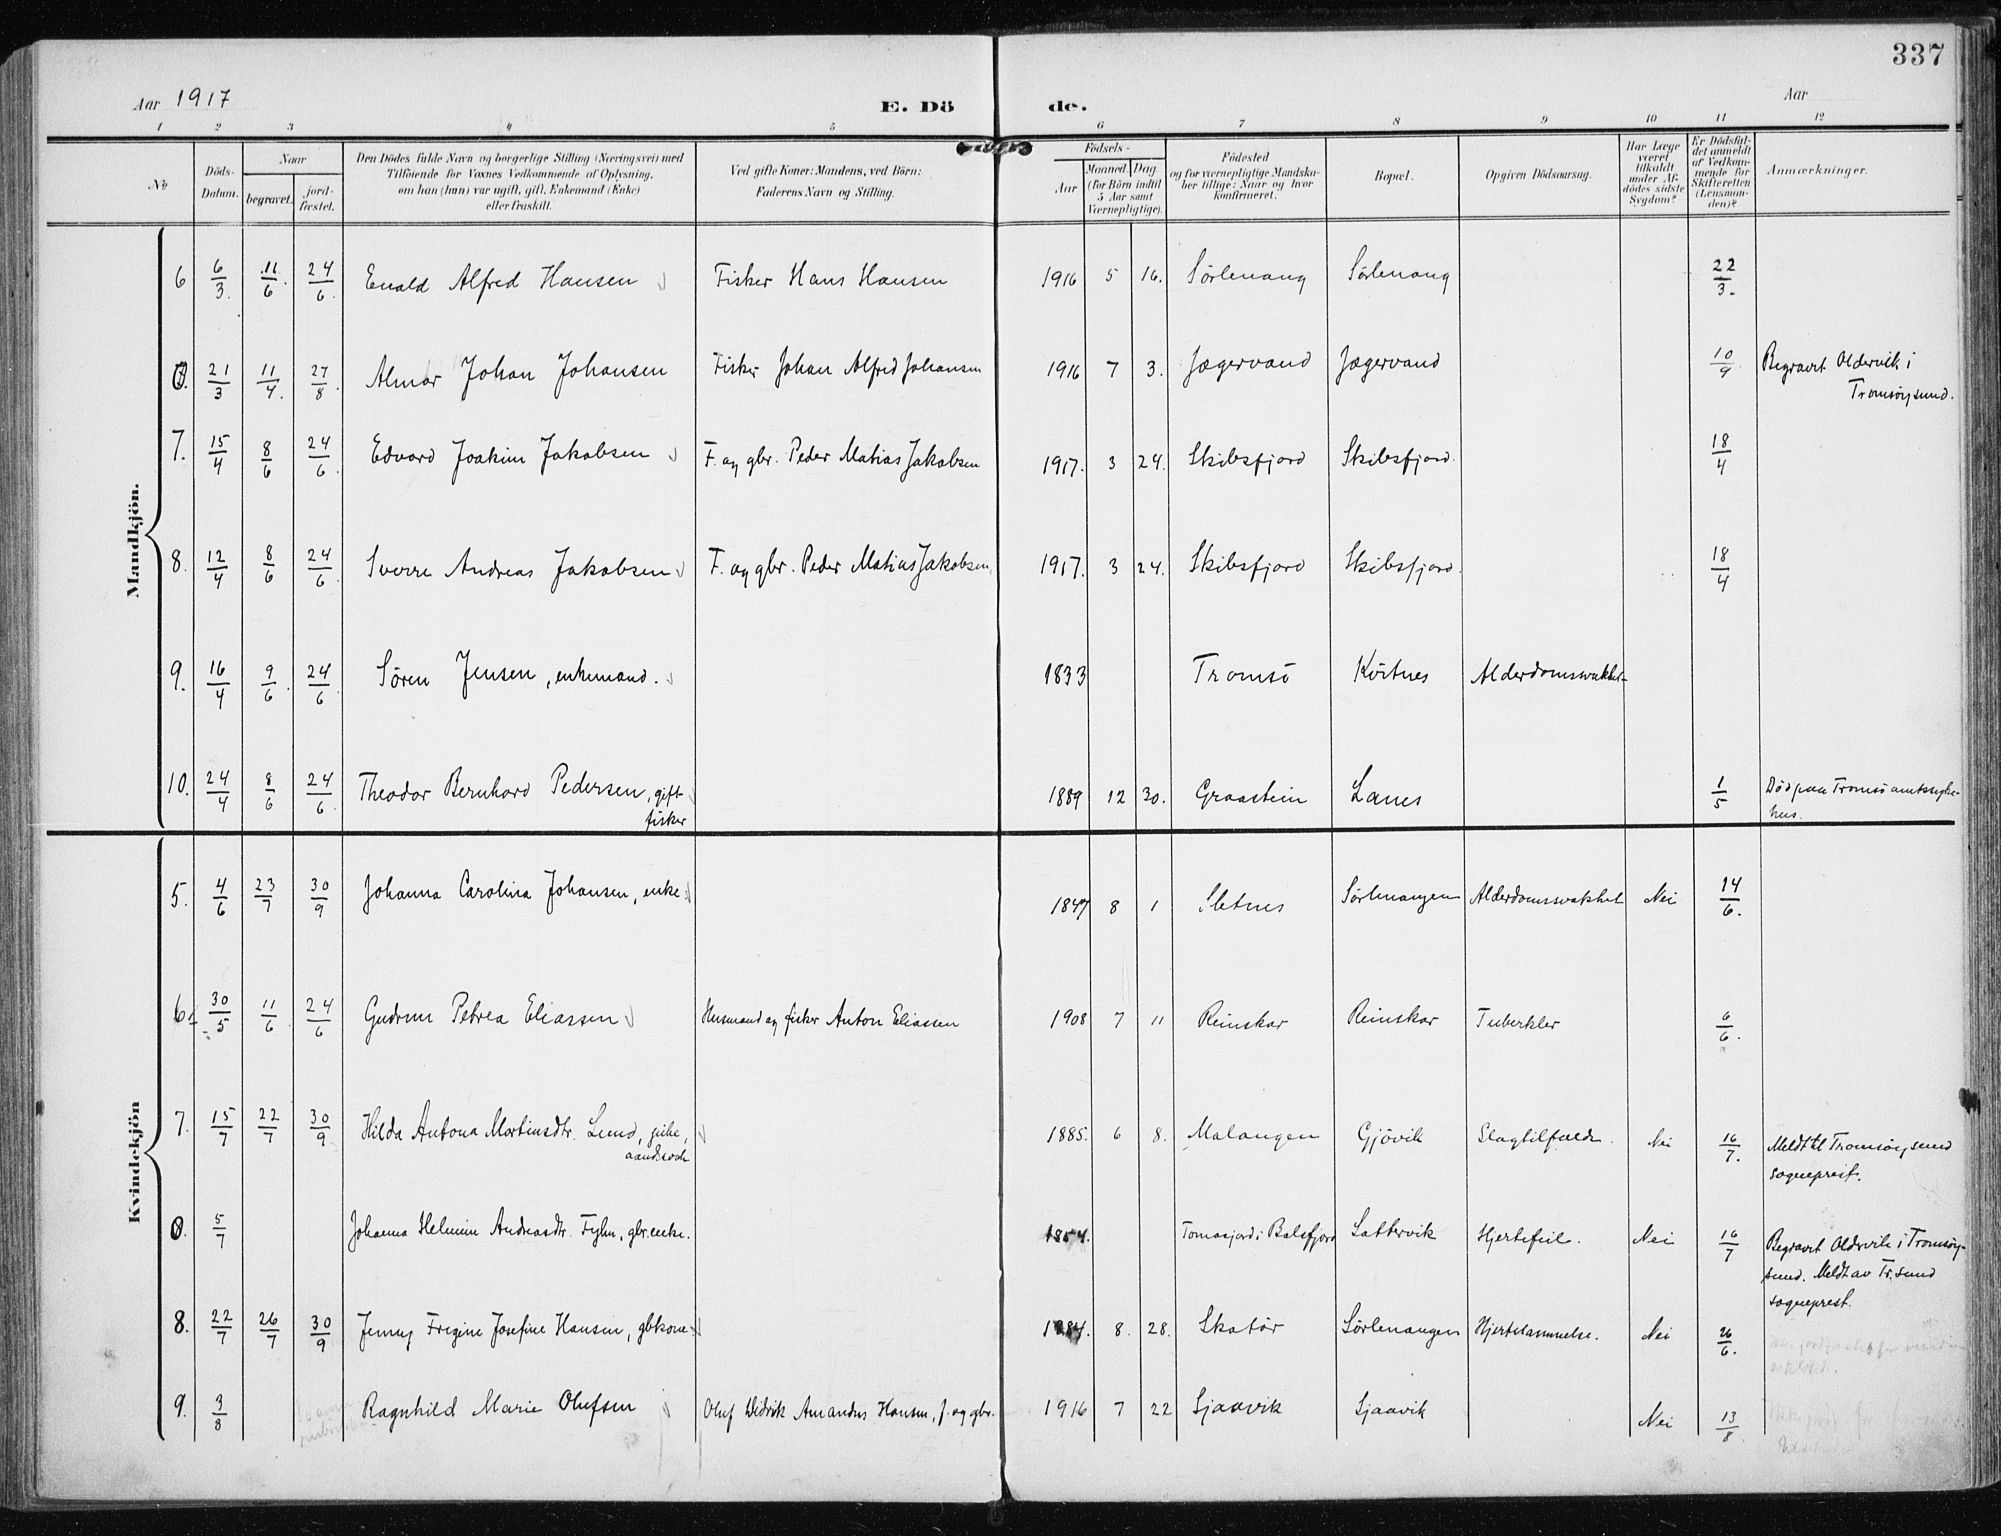 337
Aar 1917
E. Dö de.
Aar
1 2 3 4 5 6 7 8 9 10 11 12
№
Döds-Datum.
Naar
begravet.
jord-fæstet.
Den Dödes fulde Navn og borgerlige Stilling (Næringsvei) med
Tilföiende for Voxnes Vedkommende af Oplysning,
om han (hun) var ugift, gift, Enkemand (Enke)
eller fraskilt.
Ved gifte Koner: Mandens, ved Börn:
Faderens Navn og Stilling.
Födsels-
Aar
Maaned Dag
(for Börn indtil
5 Aar samt
Værnepligtige).
Födested
og for værnepligtige Mandska-
ber tillige: Naar og hvor
konfirmeret.
Bopæl.
Opgiven Dödsaarsag.
Har Læge
været
tilkaldt
under Af-
dödes sidste
Sygdom?
Er Dödsfal-
det anmeldt
af Vedkom-
mende for
Skifteretten
(Lensman-
den)?
Anmærkninger.
Mandkjön.
6 6/3. 11/6 24/6. Enald Alfred Hansen Fisker Hans Hansen 1916 5 16. Sörlenang Sörlenang 22/3.
0. 21/3 11/4. 27/8. Almar Johan Johansen Fisker Johan Alfred Johansen 1916 7 3. Jægervand Jægervand 10/9 Begravet Oldervik i
Tromsöysund.
7. 15/4 8/6 24/6. Edvard Joakim Jakobsen F. og gbr. Peder Matias Jakobsen 1917. 3 24. Skibsfjord Skibsfjord. 18/4
8. 12/4 8/6 24/6. Sverre Andreas Jakobsen F. og gbr. Peder Matias Jakobsen 1917. 3 24. Skibsfjord Skibsfjord. 18/4
9. 16/4 9/6. 24/6 Sören Jensen, enkemand. 1833 Tromsö Körtnes Alderdomssvakhet
10. 24/4 8/6 24/6. Theodor Bernhard Pedersen, gift
fisker 1889 12 30. Graastein Lanes 1/5 Död paa Tromsö amtssyke-
hus.
Kvindekjön
5. 4/6 23/7 30/9 Johanna Carolina Johansen, enke. 1847 8 1 Sletnes Sörlenangen Alderdomssvakhet Nei 14/6.
6. 30/5 11/6 24/6 Gudrun Petrea Eliassen Husmand og fisker Anton Eliassen 1908 7 11 Reinskar Reinskar Tuberkler 6/6.
7. 15/7 22/7 30/9 Hilda Antona Martinsdtr. Lund, pike,
aandssvak 1885. 6 8. Malangen Gjövik Slagtilfælde. Nei 16/7. Meldt til Tromsöysund
sogneprest.
0. 5/7 Johanna Helmine Andreasdtr. Fyhn, gbr.enke. 1854. Tomasjord i Balsfjord Lattervik Hjertefeil. Nei 16/7 Begravet Oldervik i Tromsöy-
sund. Meldt av Tr.sund
sogneprest.
8. 22/7 26/7 30/9 Jenny Fregine Josefine Hansen, gbkone 1884. 8. 28. Skatör Sörlenangen Hjertelammelse. Nei 26/6.
9. 3/8 Ragnhild Marie Olufsen Oluf Didrik Amandus Hansen, f. og gbr. 1916 7 22 Sjaavik Sjaavik Nei 13/8